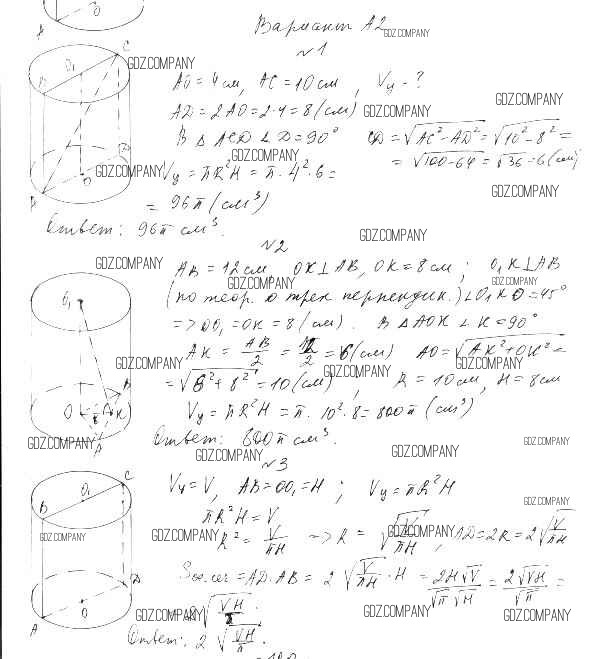 Вариант А2
№1
AO = 4 см, AC = 10 см, Vц - ?
AD = 2AO = 2·4 = 8 (см)
В Δ ACD ∠D = 90° CD = √AC² - AD² = √10² - 8² =
= √100 - 64 = √36 = 6 (см)
Vц = πR²H = π·4²·6 =
= 96π (см³)
Ответ: 96π см³.
№2
AB = 12 см, OK ⊥ AB, OK = 8 см; O₁K ⊥ AB
(по теор. о трех перпендик.) ∠O₁KO = 45°
=> OO₁ = OK = 8 (см). В Δ AOK ∠K = 90°
AK = AB/2 = 12/2 = 6 (см) AO = √AK² + OK² =
= √6² + 8² = 10 (см), R = 10 см, H = 8 см
Vц = πR²H = π·10²·8 = 800π (см³)
Ответ: 800π см³.
№3
Vц = V, AB = OO₁ = H; Vц = πR²H
πR²H = V
R² = V/πH => R = √V/πH, AD = 2R = 2√V/πH
Sос.сеч = AD·AB = 2√V/πH · H = 2H√V/√π√H = 2√VH/√π =
2√VH/π.
Ответ: 2√VH/π.
GDZ.COMPANY